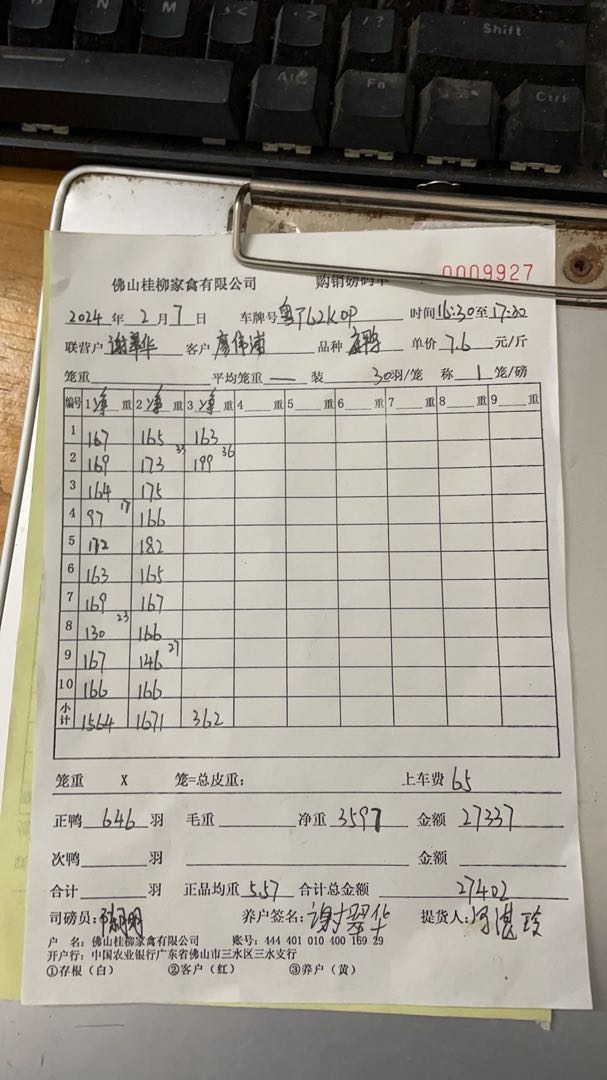 Shift
Alt Fn Ctrl
佛山桂柳家禽有限公司 购销磅码单
0009927
2024年2月7日 车牌号 时间16:30至17:30
联营户 谢翠华 客户 廖伟 品种 单价7.6元/斤
笼重 平均笼重 — 装 30羽/笼 称 1 笼/磅
编号 1净重 2净重 3净重 4重 5重 6重 7重 8重 9重
1 167 165 163
2 169 173 33 199 36
3 164 175
4 97 17 166
5 172 182
6 163 165
7 169 167
8 130 23 166
9 167 146 27
10 166 166
小计 1564 1671 362
笼重 X 笼=总皮重: 上车费 65
正鸭 646 羽 毛重 净重 3597 金额 27337
次鸭 羽 金额
合计 羽 正品均重 5.57 合计总金额 27402
司磅员: 养户签名: 谢翠华 提货人:
户 名: 佛山桂柳家禽有限公司 账号: 444 401 010 400 169 29
开户行: 中国农业银行广东省佛山市三水区三水支行
①存根（白） ②客户（红） ③养户（黄）